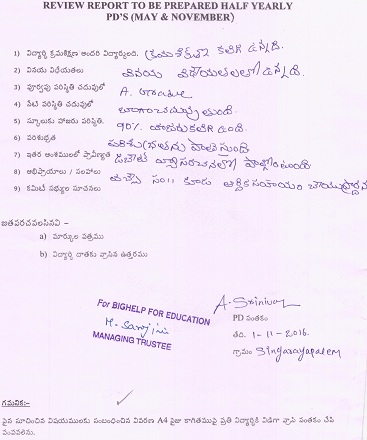 REVIEW REPORT TO BE PREPARED HALF YEARLY
PD'S (MAY & NOVEMBER)
1) విద్యార్థి క్రమశిక్షణ అందరి విద్యార్థులుంది. క్రమశిక్షణ కలిగి ఉన్నది.
2) వినయ విధేయతలు వినయ విధేయతలలో ఉన్నది.
3) పూర్వపు పరిస్థితి చదువులో A. Grade
4) నేటి పరిస్థితి చదువులో బాగా చదువుతుంది.
5) స్కూలుకు హాజరు పరిస్థితి. 90% హాజరు కలిగి ఉంది.
6) పరిశుభ్రత పరిశుభ్రతను పాటిస్తుంది
7) ఇతర అంశములలో ప్రావీణ్యత వ్యాసరచనలో పాల్గొంటుంది
8) అభిప్రాయాలు / సలహాలు
9) కమిటీ సభ్యుల సూచనలు సం॥ కూడా ఆర్థిక సహాయం
జతపరచవలసినవి :-
a) మార్కుల పత్రము
b) విద్యార్థి దాతకు వ్రాసిన ఉత్తరము
For BIGHELP FOR EDUCATION
M. Sarojini
MANAGING TRUSTEE
A. Srinivas
PD సంతకం
తేది. 1-11-2016.
గ్రామం Singarayapalem
గమనిక:-
పైన సూచించిన విషయములకు సంబంధించిన వివరణ A4 సైజు కాగితముపై ప్రతి విద్యార్థికి విడిగా వ్రాసి సంతకం చేసి
పంపవలెను.